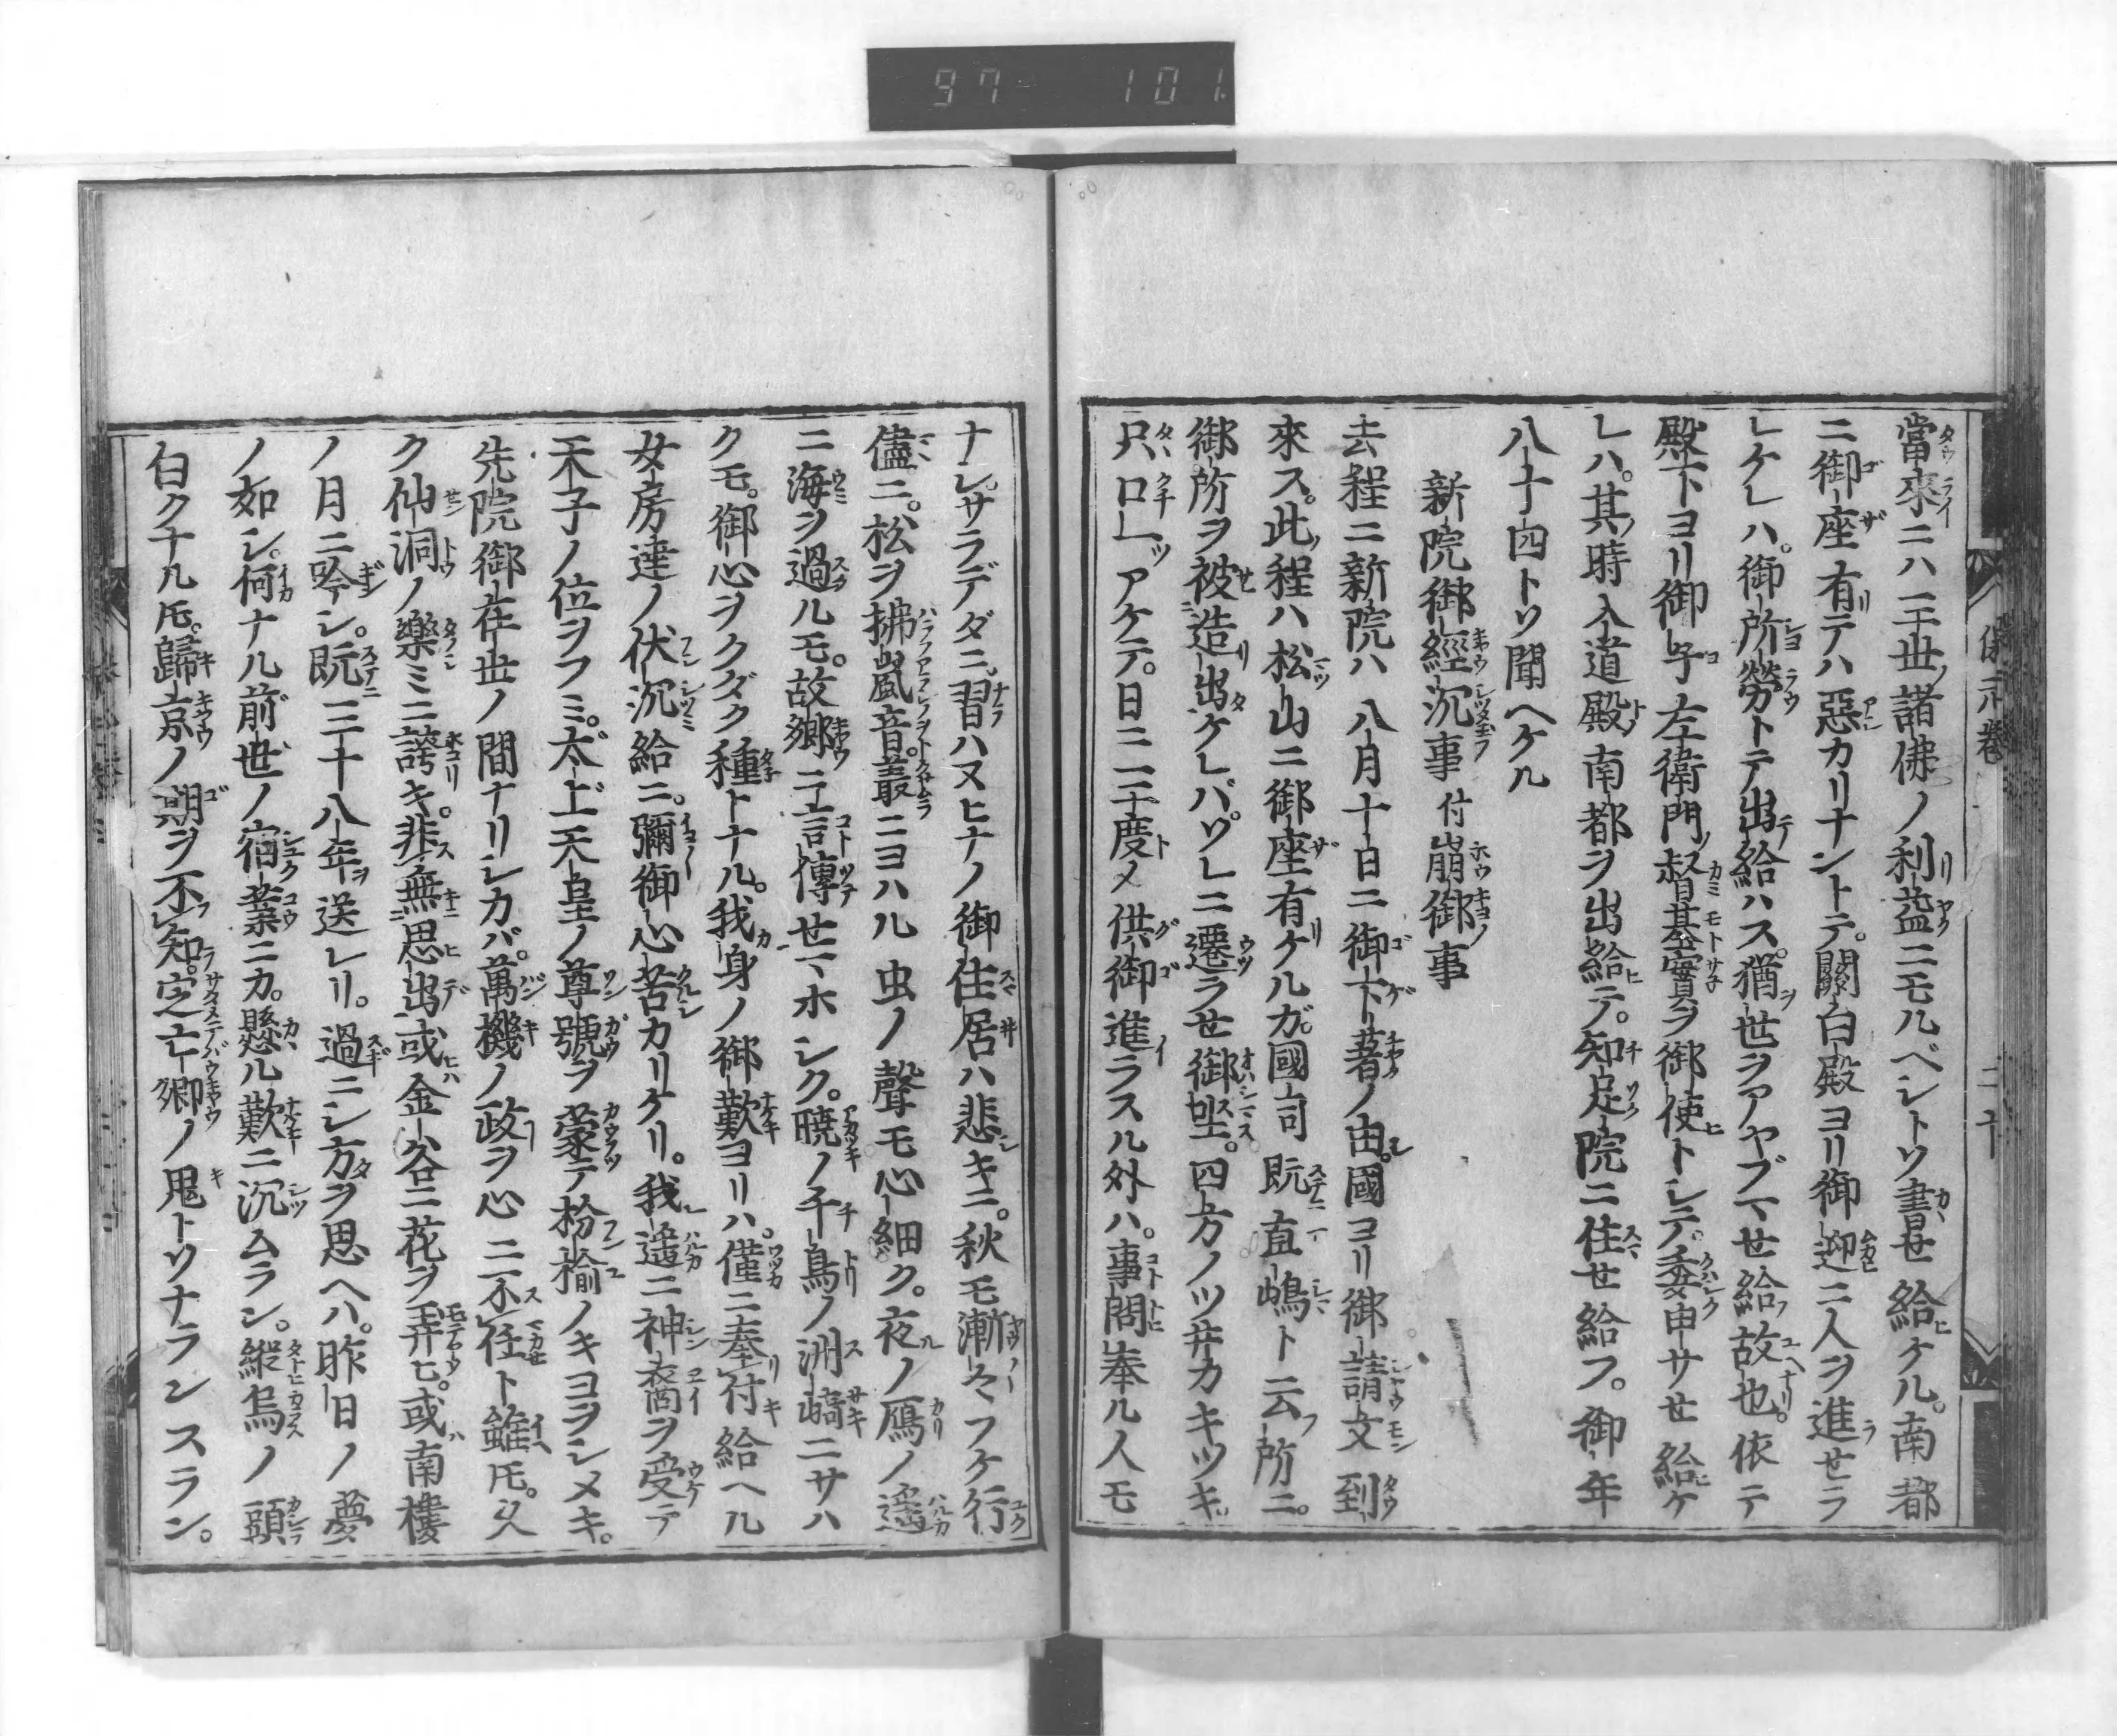 97 101
當來ニハ三世ノ諸佛ノ利益ニモルベシトソ書セ給ケル。南都
ニ御座有テハ惡カリナントテ。關白殿ヨリ御迎ニ人ヲ進セラ
レケレハ。御所勞トテ出給ハス。猶世ヲアヤブマセ給故也。依テ
殿下ヨリ御子左衛門督基實ヲ御使トシテ。委申サセ給ケ
レハ。其時入道殿南都ヲ出給テ。知足院ニ住セ給フ。御年
八十四トソ聞ヘケル
新院御經沉事付崩御事
去程ニ新院ハ八月十日ニ御下著ノ由。國ヨリ御請文到
來ス。此程ハ松山ニ御座有ケルガ。國司既直嶋ト云所ニ。
御所ヲ被造出ケレバ。ソレニ遷ラセ御坐。四方ノツ井カキツキ。
只口一ツアケテ。日ニ三度ノ供御進ラスル外ハ。事問奉ル人モ
ナシ。サラデダニ習ハヌヒナノ御住居ハ悲キニ。秋モ漸々フケ行
儘ニ。松ヲ拂嵐音。叢ニヨハル虫ノ聲モ心細ク。夜ノ鴈ノ遙
ニ海ヲ過ルモ。故郷ニ言傳セマホシク。曉ノ千鳥ノ洲崎ニサハ
クモ。御心ヲクダク種トナル。我身ノ御歎ヨリハ。僅ニ奉付給ヘル
女房達ノ伏沉給ニ。彌御心苦カリケリ。我遙ニ神裔ヲ受テ
天子ノ位ヲフミ。太上天皇ノ尊號ヲ蒙テ枌楡ノキヨヲシメキ。
先院御在世ノ間ナリシカバ。萬機ノ政ヲ心ニ不任ト雖モ。久
ク仙洞ノ樂ミニ誇キ。非無思出或金谷ニ花ヲ弄ヒ。或南樓
ノ月ニ吟シ。既三十八年送レリ。過ニシ方ヲ思ヘハ。昨日ノ夢
ノ如シ。何ナル前世ノ宿業ニカ。懸ル歎ニ沉ムラン。縱烏ノ頭
白クナル𪜈。歸京ノ期ヲ不知。定亡郷ノ鬼トソナランスラン。